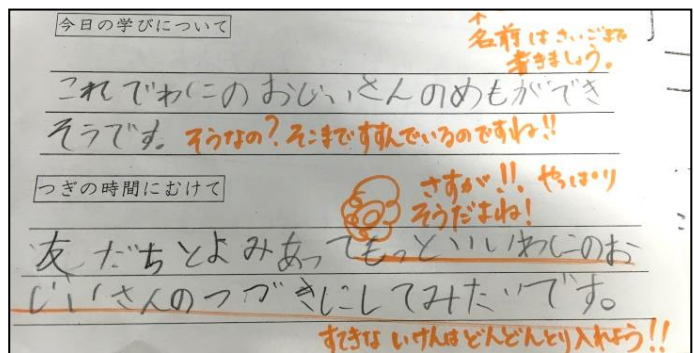 今日の学びについて
↑
名前はさいごまで
書きましょう。
これでわにのおじいさんのめもができ
そうです。そうなの?そこまですすんでいるのですね!!
つぎの時間にむけて
さすが!!やっぱり
そうだよね!
友だちとよみあってもっといいわにのお
じいさんのつづきにしてみたいです。
すてきないけんはどんどんとり入れよう!!